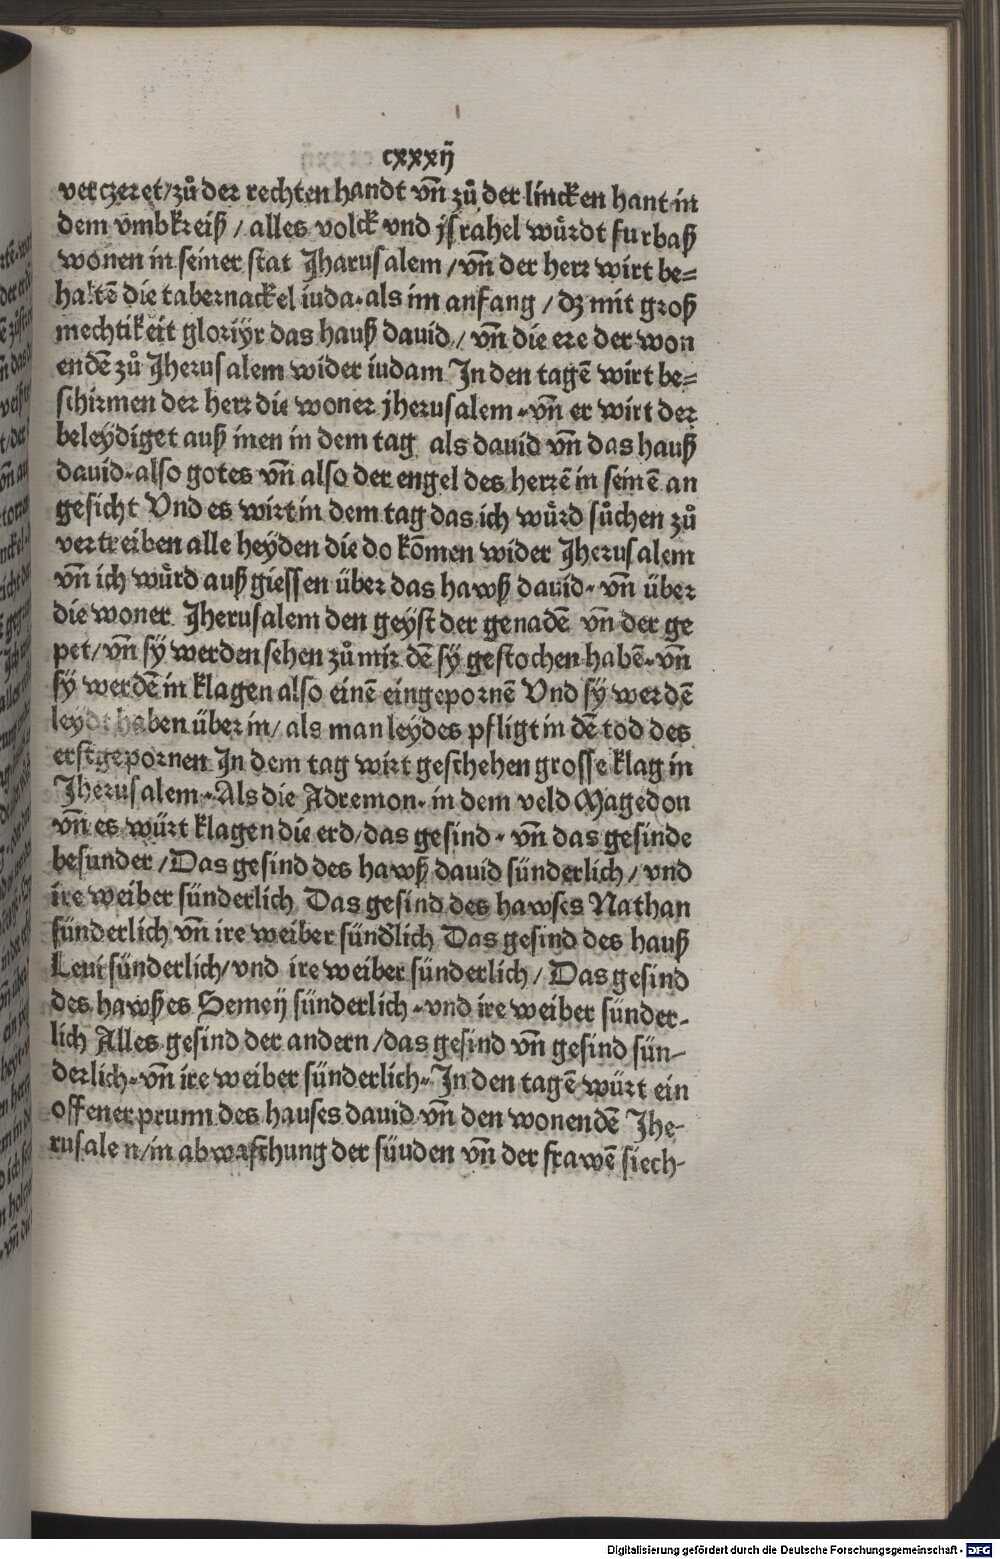 cxxxij
verczeret/zů der rechten handt vñ zů der lincken hant in
dem vmbkreiß / alles volck vnd jsrahel wůrdt furbaß
wonen in seiner stat Jharusalem / vñ der herr wirt be=
haltē die tabernackel iuda. als im anfang / dz mit groß
mechtikeit gloriyr das hauß dauid / vñ die ere der won
endē zů Jherusalem wider iudam In den tagē wirt be=
schirmen der herr die woner jherusalem . vñ er wirt der
beleydiget auß inen in dem tag als dauid vñ das hauß
dauid. also gotes vñ also der engel des herrē in seinē an
gesicht Vnd es wirt in dem tag das ich wůrd sůchen zů
vertreiben alle heyden die do kōmen wider Jherusalem
vñ ich wůrd auß giessen über das hawß dauid. vñ über
die woner Jherusalem den geyst der genadē vñ der ge
pet/ vñ sy werden sehen zů mir dē sy gestochen habē. vñ
sy werdē in klagen also einē eingepornē Vnd sy werdē
leydt haben über in/ als man leydes pfligt in dē tod des
erstgepornen In dem tag wirt geschehen grosse klag in
Jherusalem. Als die Adremon. in dem veld Magedon
vñ es würt klagen die erd/ das gesind. vñ das gesinde
besunder / Das gesind des hawß dauid sünderlich / vnd
ire weiber sünderlich Das gesind des hawses Nathan
sünderlich vñ ire weiber sündlich Das gesind des hauß
Leui sünderlich/ vnd ire weiber sünderlich / Das gesind
des hawßes Semeij sünderlich. vnd ire weiber sünder-
lich Alles gesind der andern / das gesind vñ gesind sün-
derlich. vñ ire weiber sünderlich. In den tagē würt ein
offener prunn des hauses dauid vñ den wonendē Jhe-
rusale n/ in abwaschung der süuden vñ der frawē siech-
Digitalisierung gefördert durch die Deutsche Forschungsgemeinschaft - DFG